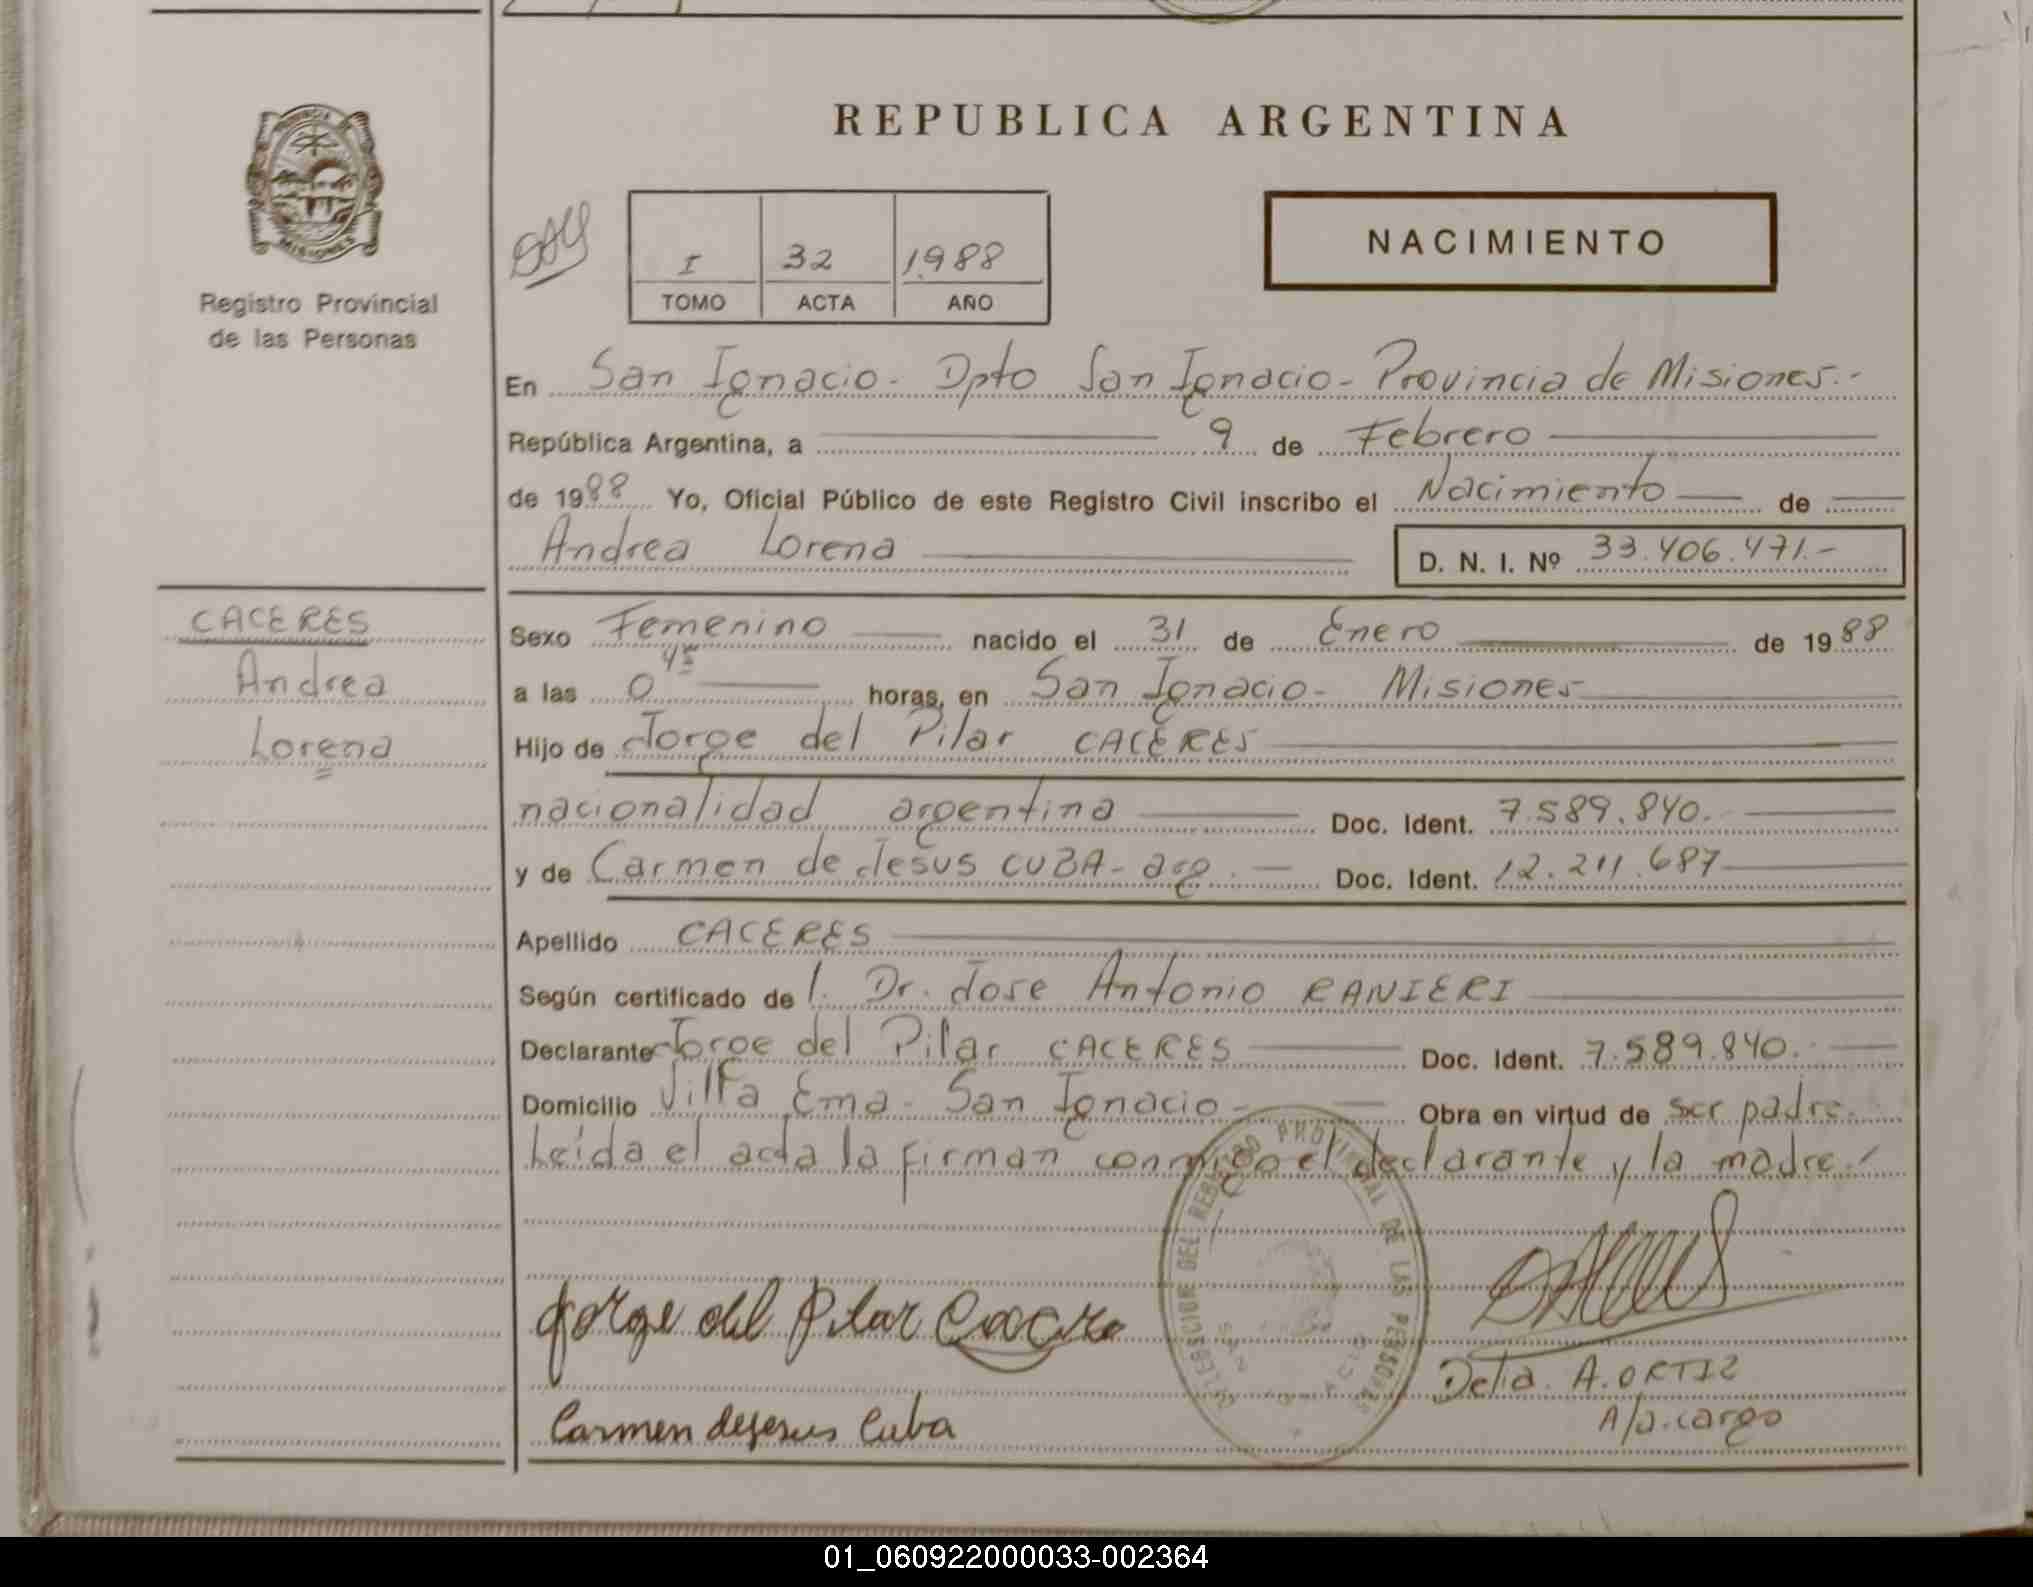 REPUBLICA ARGENTINA
PROVINCIA DE
MISIONES
Registro Provincial
de las Personas
I 32 1988
TOMO ACTA AÑO
NACIMIENTO
En San Ignacio - Dpto San Ignacio - Provincia de Misiones.-
República Argentina, a 9 de Febrero
de 1988 Yo, Oficial Público de este Registro Civil inscribo el Nacimiento de
Andrea Lorena D. N. I. Nº 33.406.471.-
CACERES
Andrea
Lorena
Sexo Femenino nacido el 31 de Enero de 1988
a las 0 45 horas, en San Ignacio - Misiones
Hijo de Jorge del Pilar CACERES
nacionalidad argentina Doc. Ident. 7.589.840.
y de Carmen de Jesus CUBA - arg. Doc. Ident. 12.211.687
Apellido CACERES
Según certificado de l. Dr. Jose Antonio RANIERI
Declarante Jorge del Pilar CACERES Doc. Ident. 7.589.840.
Domicilio Villa Ema - San Ignacio - Obra en virtud de ser padre.
Leída el acta la firman conmigo el declarante y la madre.
DELEGACION DEL REGISTRO PROVINCIAL DE LAS PERSONAS
SAN IGNACIO
Jorge del Pilar Cacere
Delia A. ORTIZ
A/a.cargo
Carmen dejesus Cuba
01_060922000033-002364